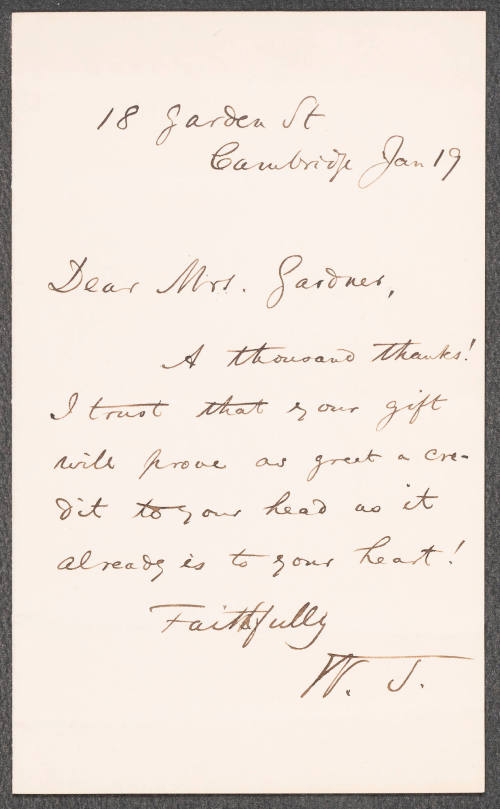 18 Garden St
Cambridge Jan 19
Dear Mrs. Gardner,
A thousand thanks!
I trust that your gift
will prove as great a cre-
dit to your head as it
already is to your heart!
Faithfully
W. J.